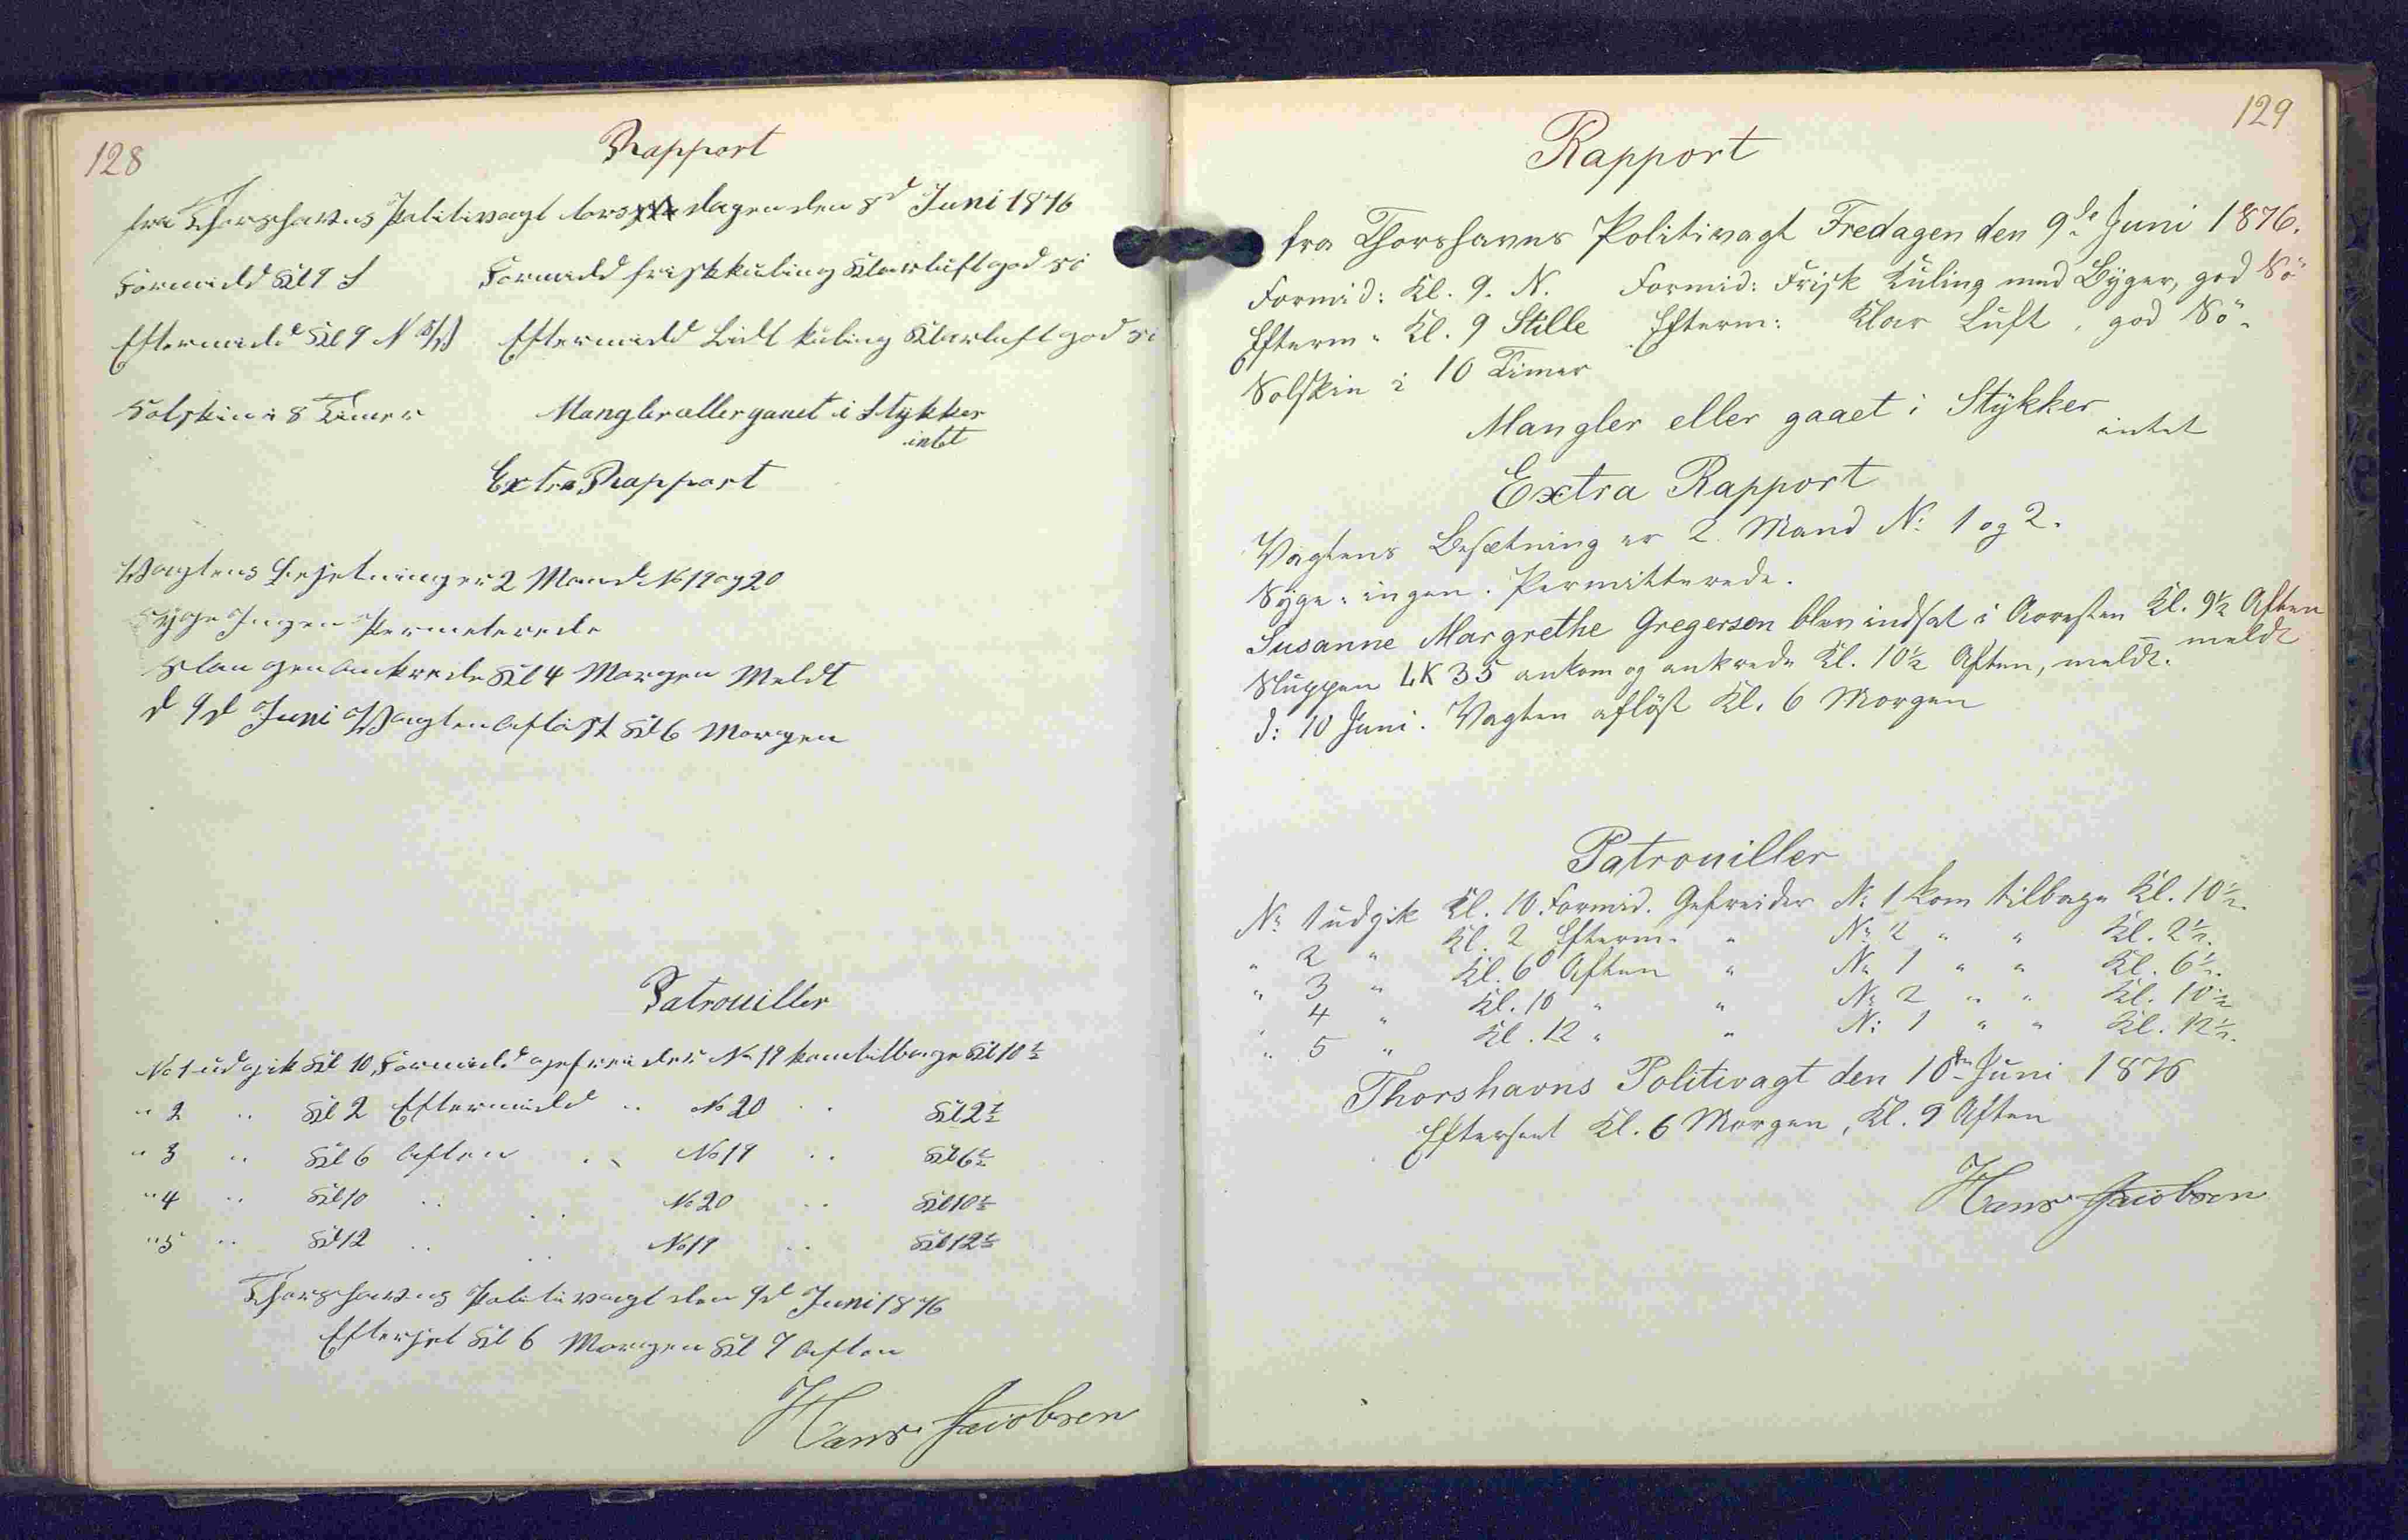 128
Rapport
fra Thorshavns Politivagt torsdagen den 8d Juni 1876
Formidd Kl 9 S Formidd frisk kuling Klarluft god sö
Eftermidd Kl 9 N Eftermidd Lidt kuling Klarluft god sö
Solskin i 8 Timer Mangler eller gaaet i Stykker
intet
Extra Rapport
Wagtens besetning er 2 Mand No 19 og 20
Syge Ingen Permeterede
ankrede Kl 4 Morgen Meldt
d 9d Juni Wagten aflöst Kl 6 Morgen
Patrouiller
No 1 udgik Kl 10 Formidd gefreider No 19 kom tilbage Kl 10 1/2
" 2 " Kl 2 Eftermidd " No 20 " Kl 2 1/2
" 3 " Kl 6 Aften " No 19 " Kl 6 1/2
" 4 " Kl 10 " " No 20 " Kl 10 1/2
" 5 " Kl 12 " " No 19 " Kl 12 1/2
Thorshavns Politivagt den 9d Juni 1876
Efterset Kl 6 Morgen Kl 9 Aften
Hans Jacobsen
129
Rapport
fra Thorshavns Politivagt Fredagen den 9de Juni 1876.
Formid: Kl. 9. N. Formid: Frisk Kuling med Byger, god Sö
Efterm: Kl. 9 Stille Efterm: Klar Luft, god Sö.
Solskin i 10 Timer
Mangler eller gaaet i Stykker intet
Extra Rapport
Vagtens Besætning er 2 Mand No: 1 og 2.
Syge: ingen. Permitterede.
Susanne Margrethe Gregersen blev indsat i Arresten Kl. 9 1/2 Aften
meldt
Sluppen LK 35 ankom og ankrede Kl. 10 1/2 Aften, meldt.
d: 10 Juni. Vagten aflöst Kl. 6 Morgen
Patrouiller
No 1 udgik Kl. 10 Formid. Gefreider No: 1 kom tilbage Kl. 10 1/2.
" 2 " Kl. 2 Efterm. " No 2 " " Kl. 2 1/2.
" 3 " Kl. 6 Aften " No 1 " " Kl. 6 1/2.
" 4 " Kl. 10 " " No 2 " " Kl. 10 1/2
" 5 " Kl. 12 " " No: 1 " " Kl. 12 1/2.
Thorshavns Politivagt den 10de Juni 1876
Efterset Kl. 6 Morgen, Kl. 9 Aften
Hans Jacobsen